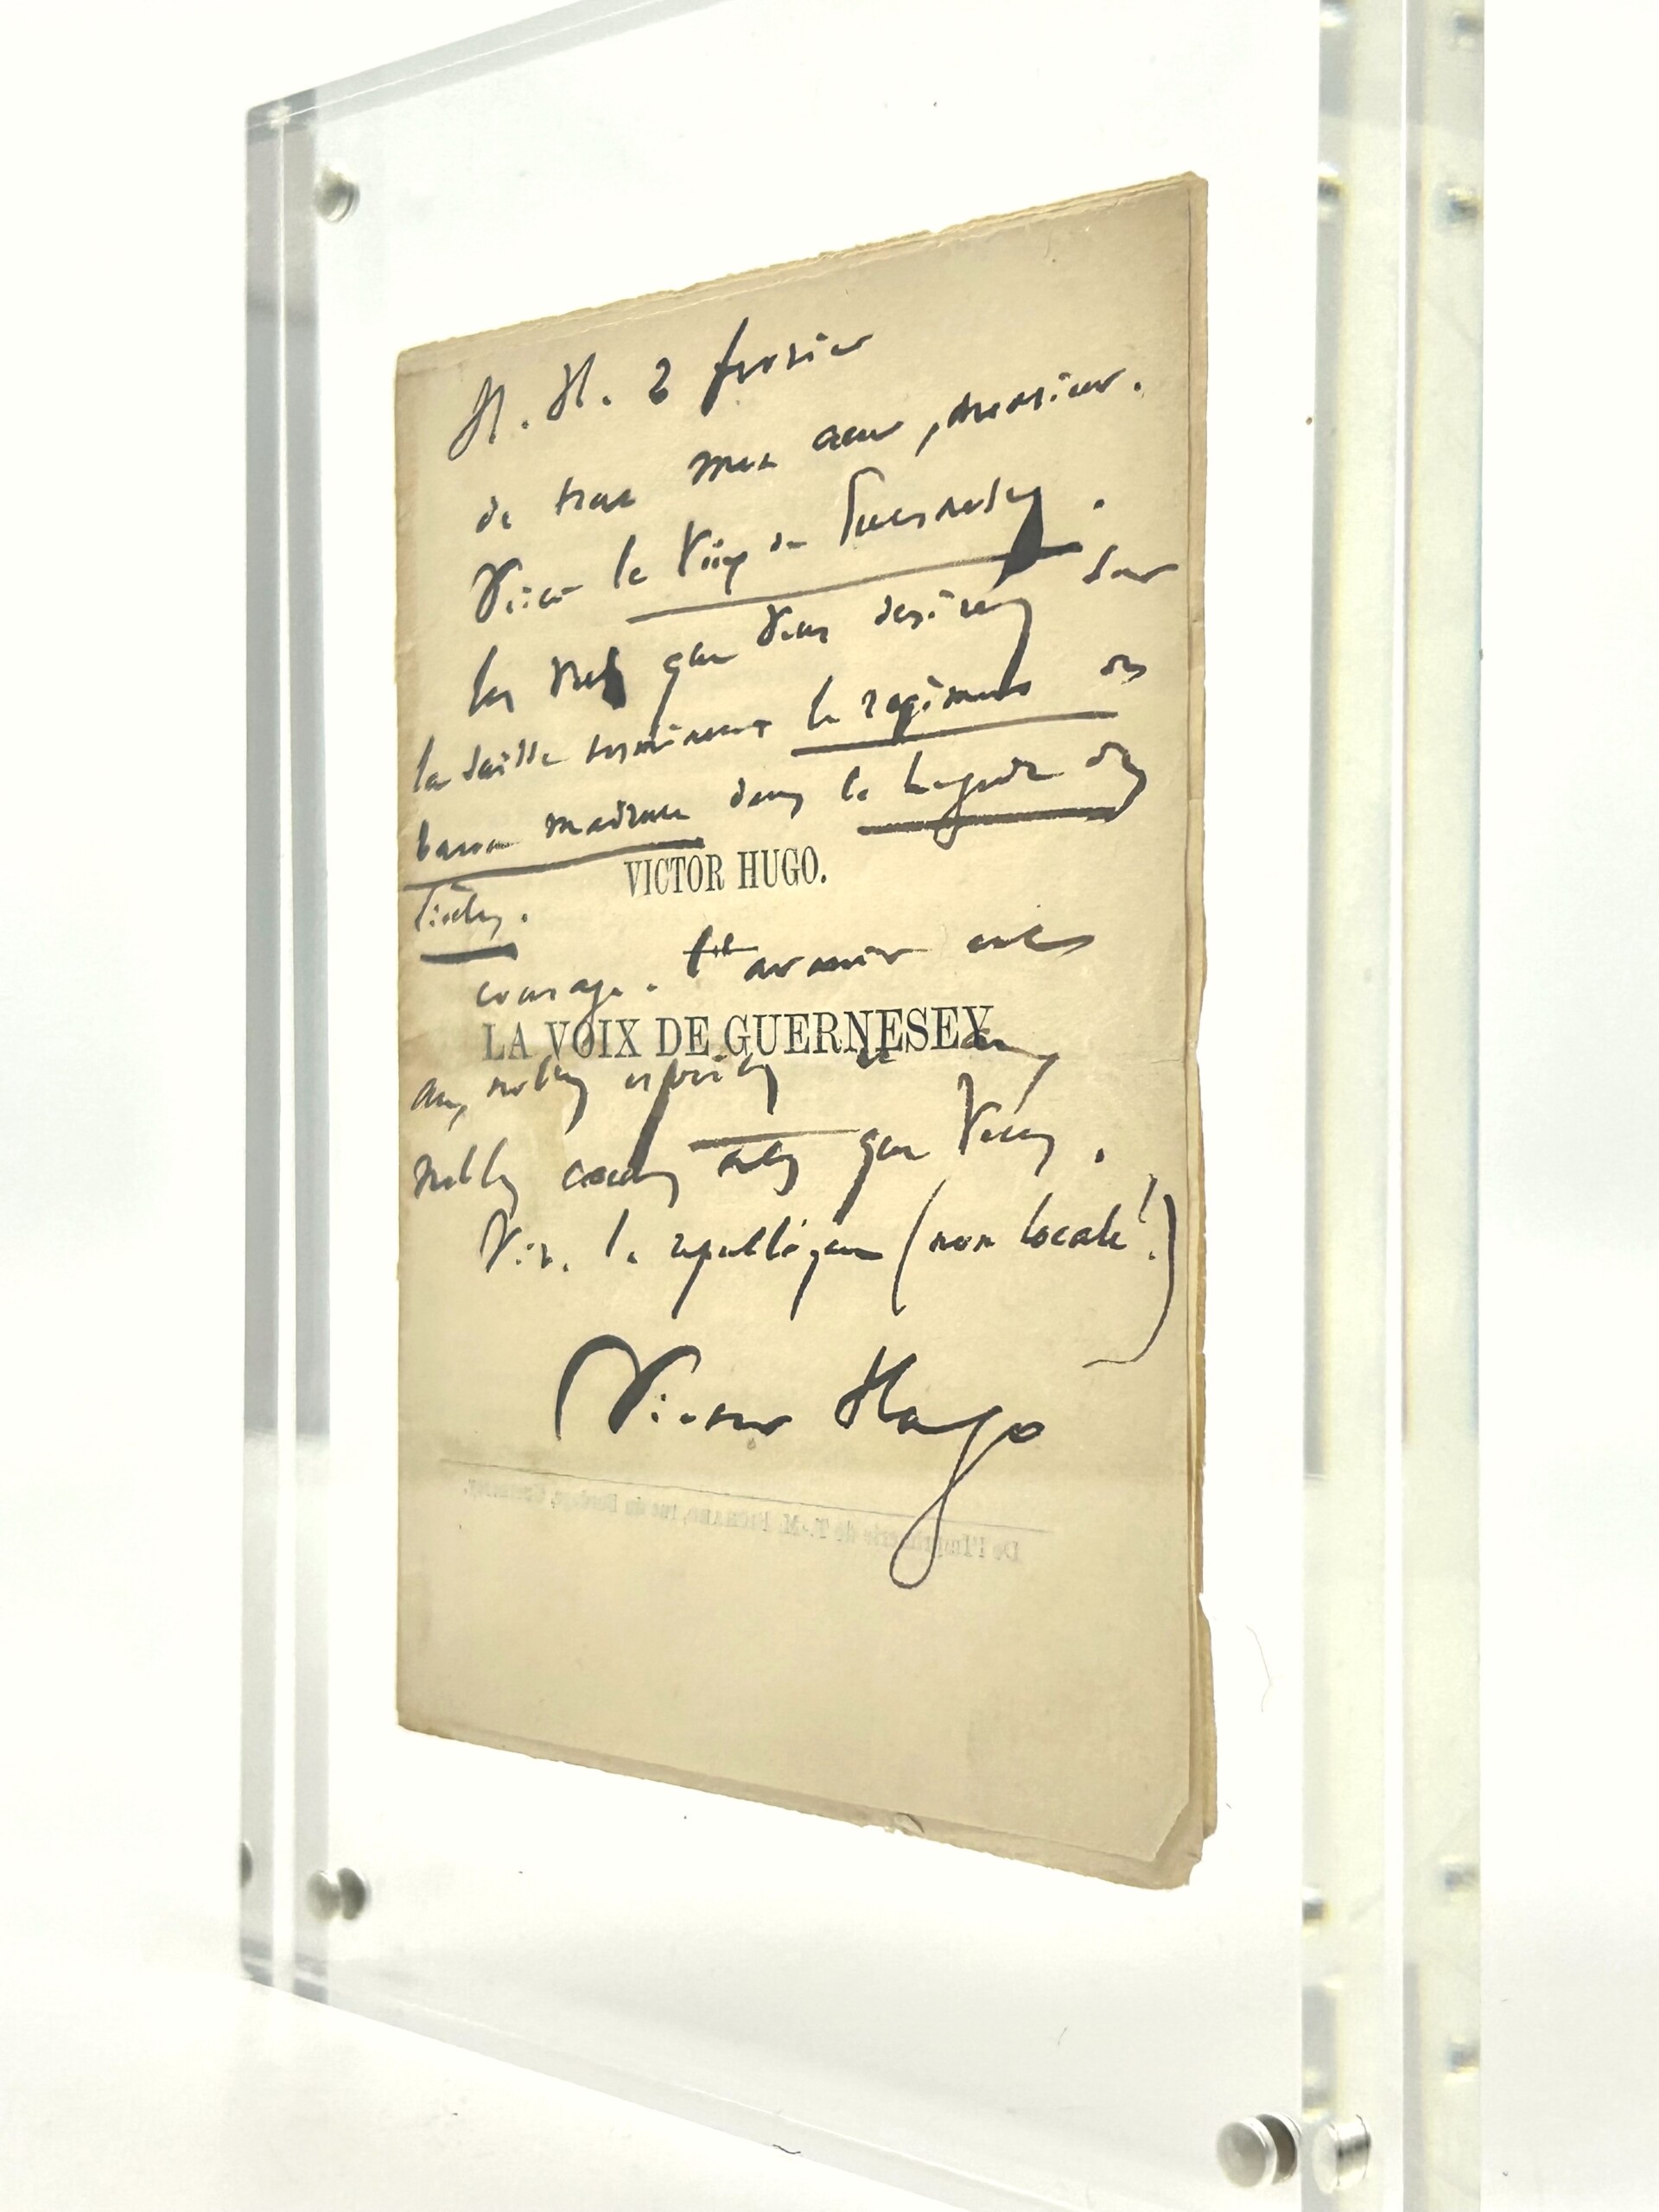 H. H. 2 février
de tout mon cœur, monsieur.
Voici la Voix de Guernesey.
les que vous désirez sur
la taille terminent le régiment du
baron madruce dans la Légende des
Siècles.
VICTOR HUGO.
courage. l'avenir est
LA VOIX DE GUERNESEY
aux nobles esprits et aux
nobles cœurs tels que vous.
Vive la république (non locale!)
Victor Hugo
De l'Imprimerie de T.-M. BICHARD, rue du Bordage, Guernesey.